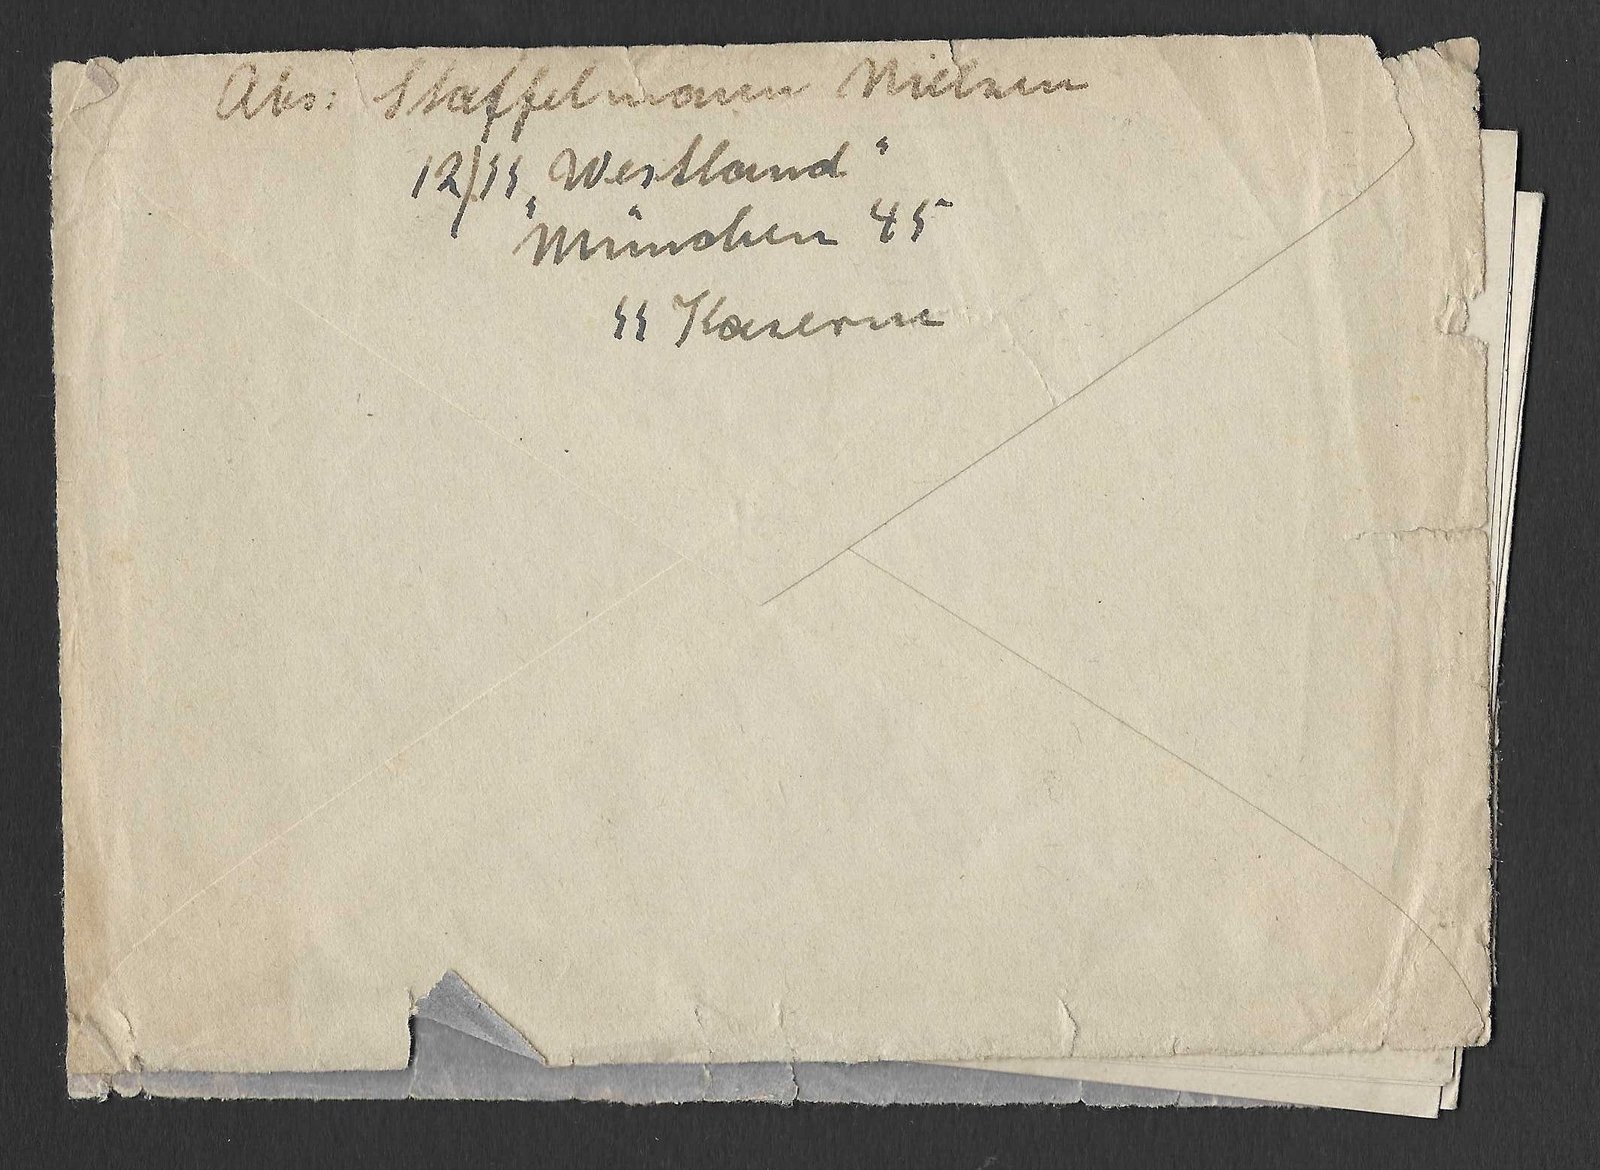 Abs: Staffelmann Nielsen
12/SS „Westland"
München 45
SS Kaserne